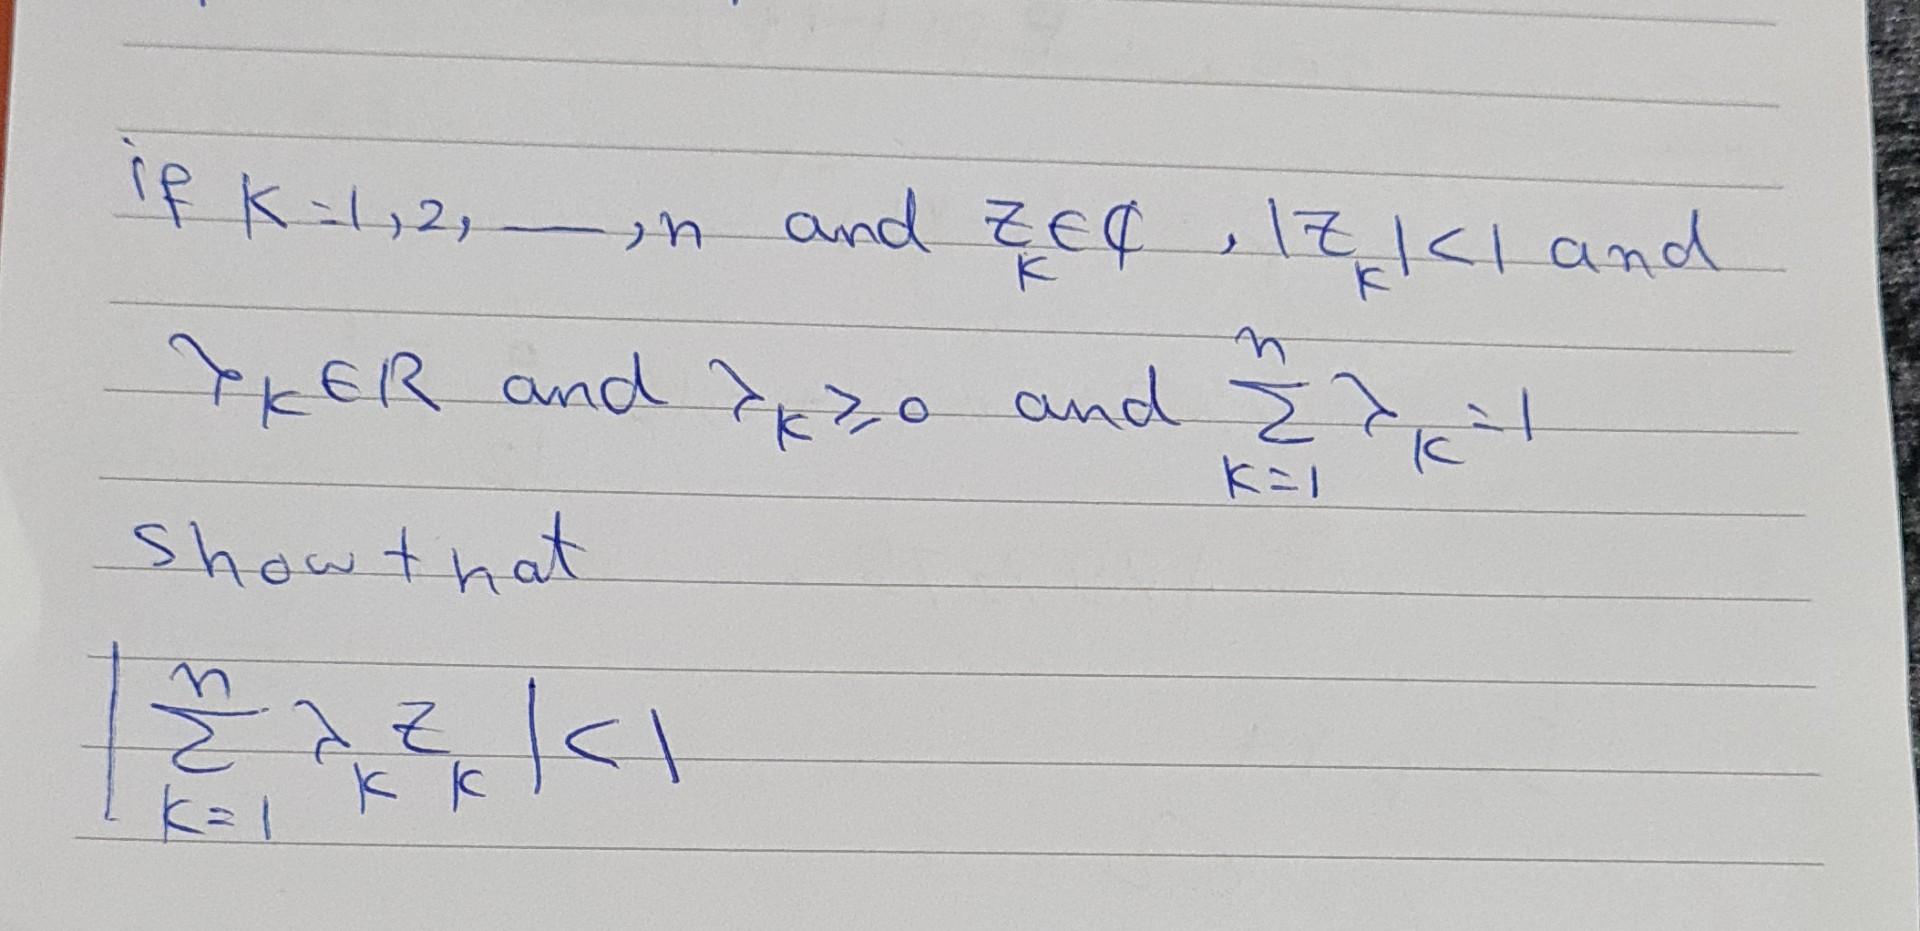 if K=1,2,—,n and Z_K∈₵, |Z_K|<1 and
λ_K∈R and λ_K⩾0 and \sum_{K=1}^{n} λ_K=1
show that
|\sum_{K=1}^{n} λ_K Z_K|<1